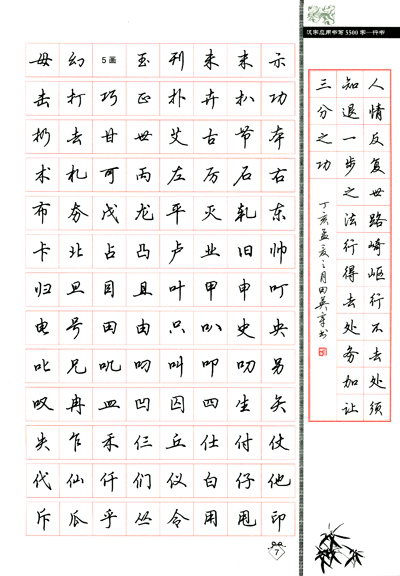 汉字应用书写5500字—行书
毋 幻 5画 玉 刊 未 末 示
击 打 巧 正 扑 卉 扒 功
扔 去 甘 世 艾 古 节 本
术 札 可 丙 左 厉 石 右
布 夯 戊 龙 平 灭 轧 东
卡 北 占 凸 卢 业 旧 帅
归 旦 目 且 叶 甲 申 叮
电 号 田 由 只 叭 史 央
叱 兄 叽 叼 叫 叩 叨 另
叹 冉 皿 凹 囚 四 生 矢
失 乍 禾 仨 丘 仕 付 仗
代 仙 仟 们 仪 白 仔 他
斥 瓜 乎 丛 令 用 甩 印
人情反复世路崎岖行不去处须
知退一步之法行得去处务加让
三分之功
丁亥孟夏之月田英章书
7